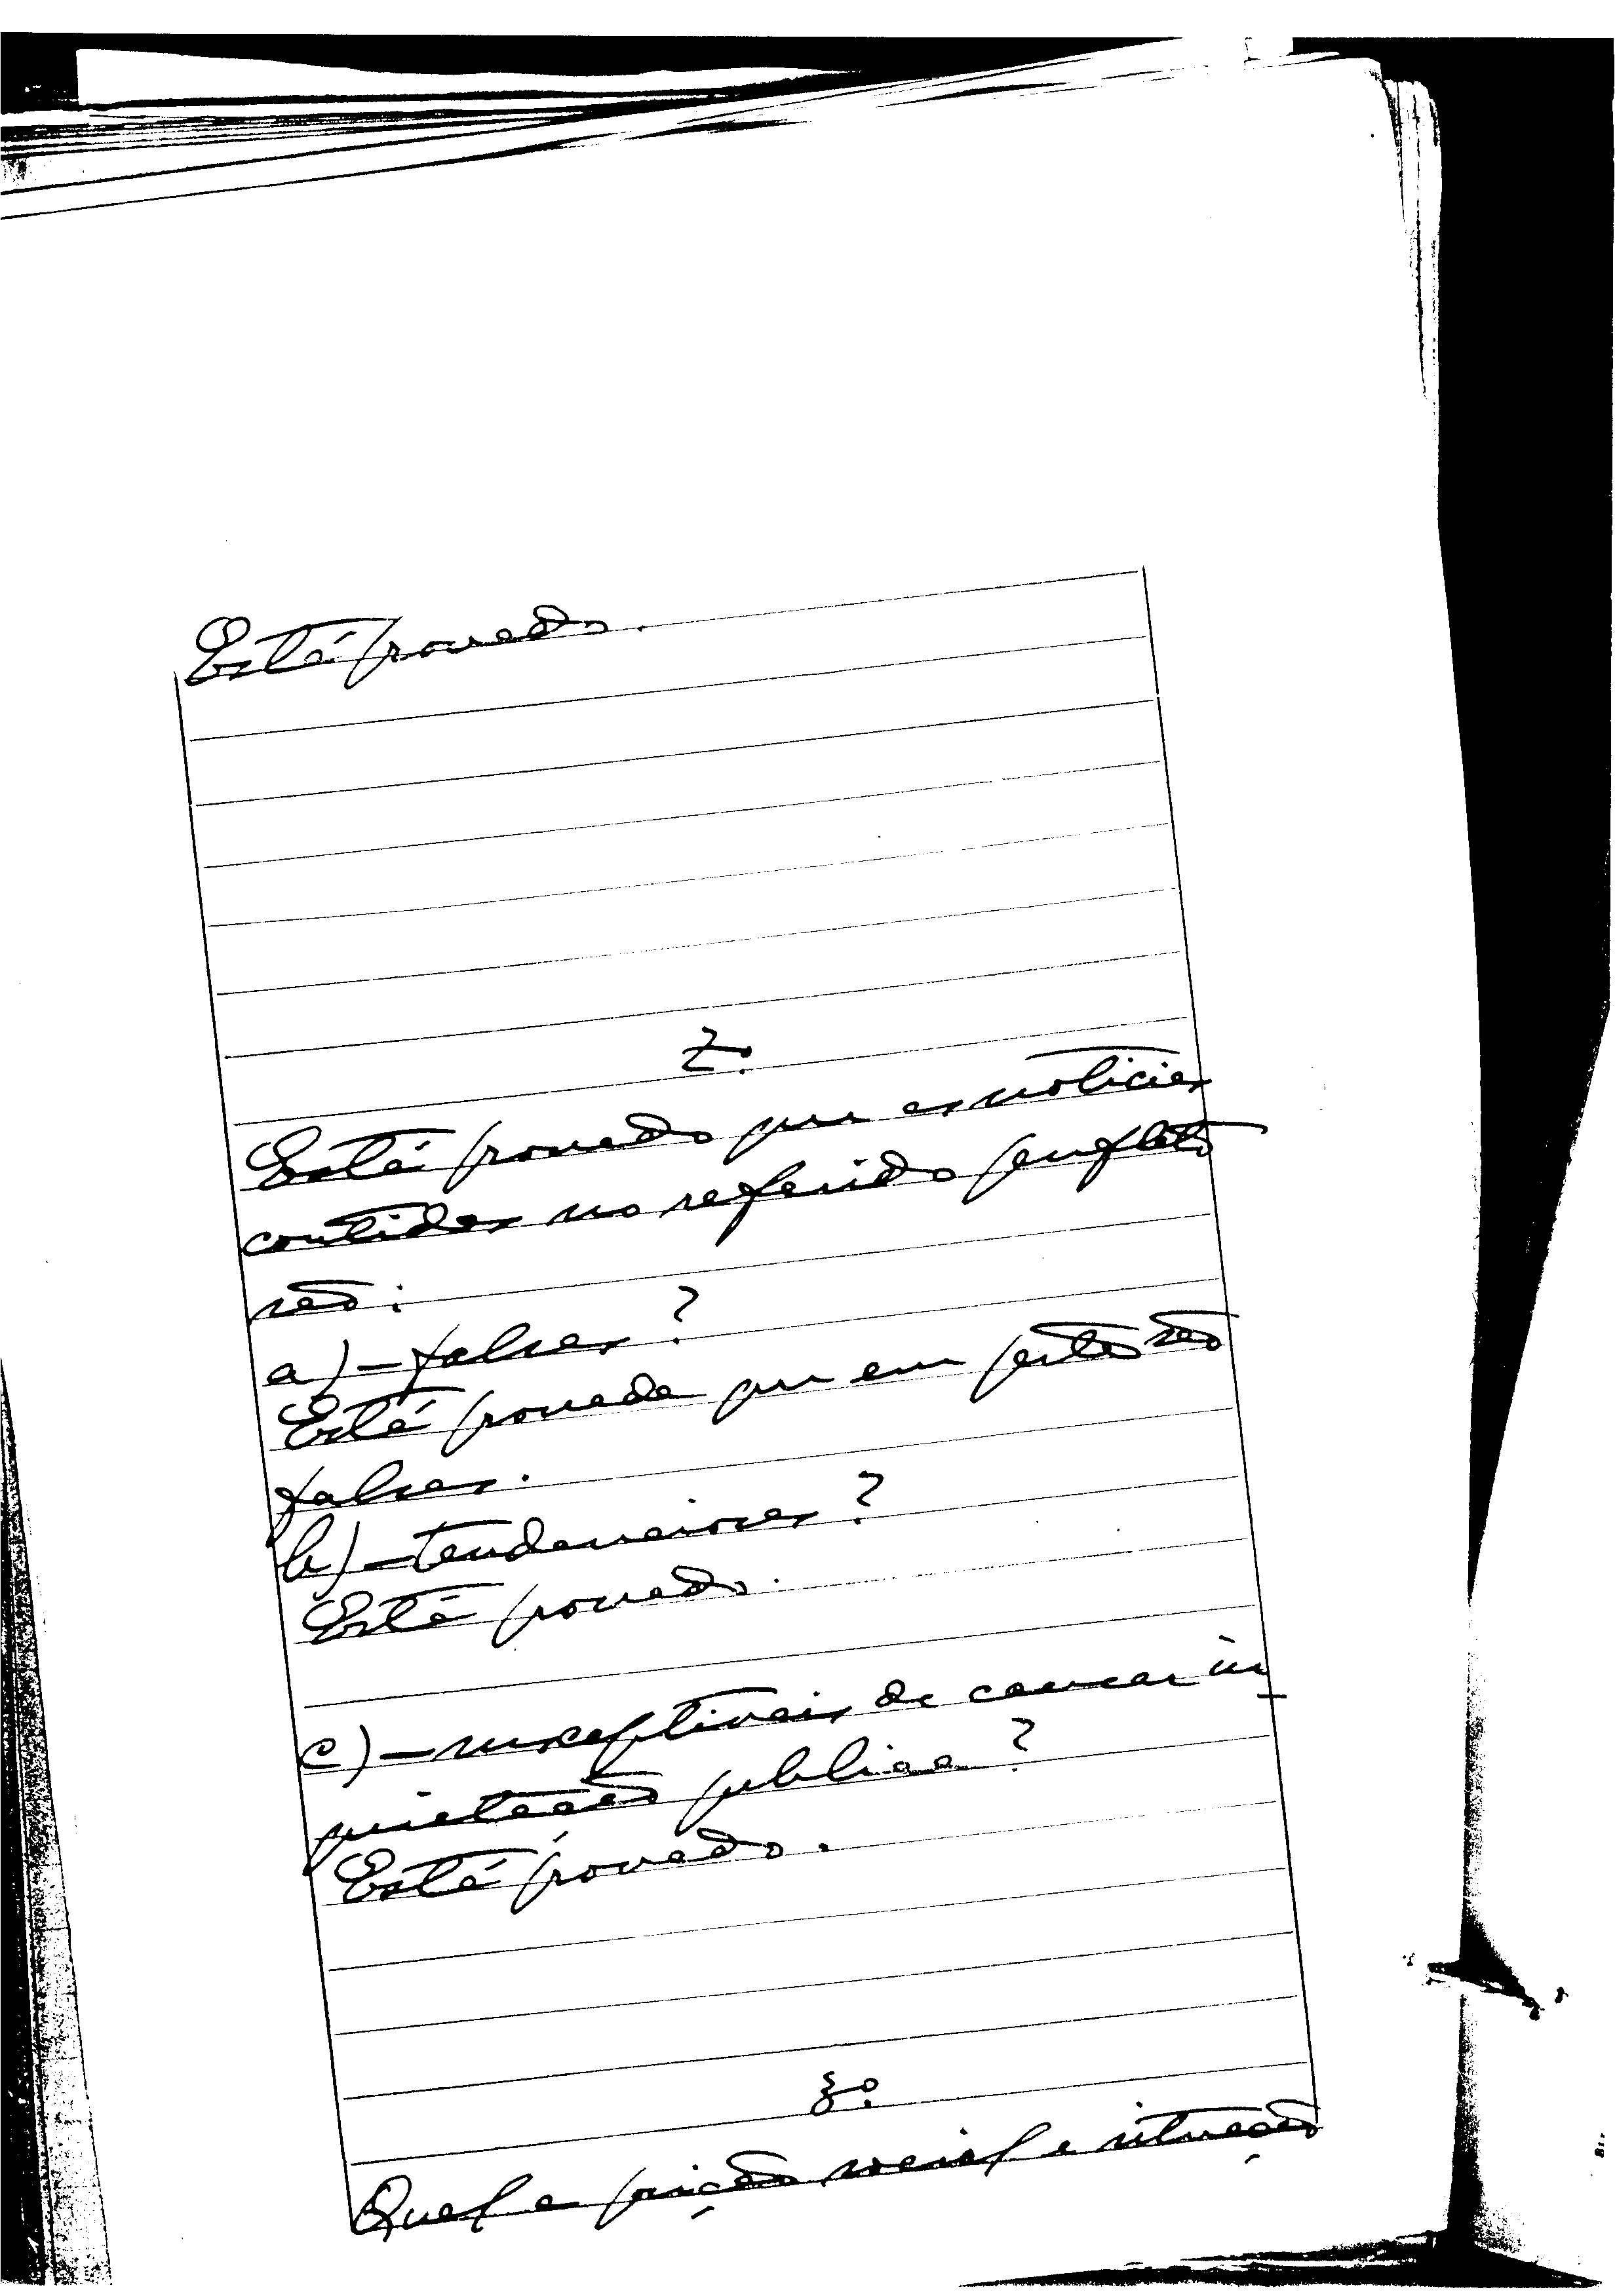 Está provado.
2º
Está provado que as noticias
contidas no referido panfleto
são:
a) - falsas?
Está provado que em parte são
falsas.
b) - tendenciosas?
Está provado.
c) - susceptiveis de causar in
quietação publica?
Está provado.
3º
Qual a posição social e situação